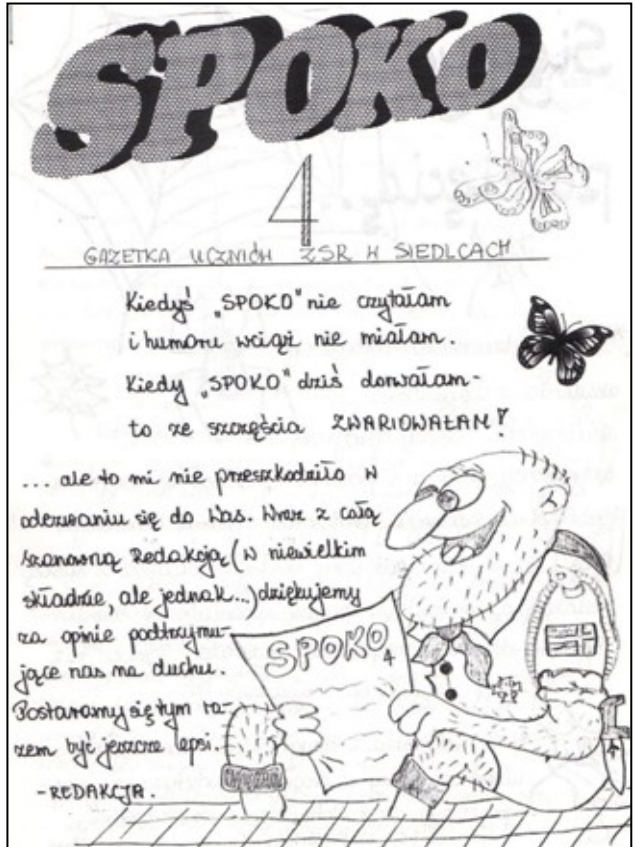 SPOKO
4
GAZETKA UCZNIÓW ZSR W SIEDLCACH
Kiedyś „SPOKO" nie czytałam
i humoru wciąż nie miałam.
Kiedy „SPOKO" dziś dorwałam-
to ze szczęścia ZWARIOWAŁAM!
... ale to mi nie przeszkodziło w
odezwaniu się do Was. Wraz z całą
szanowną Redakcją (w niewielkim
składzie, ale jednak...) dziękujemy
za opinie podtrzymu-
jące nas na duchu.
Postaramy się tym ra-
zem być jeszcze lepsi.
-REDAKCJA.
SPOKO
4